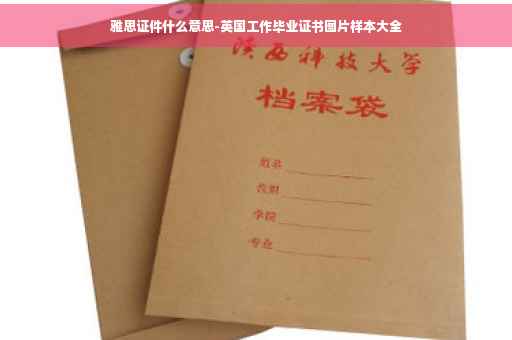 雅思证件什么意思-英国工作毕业证书图片样本大全
陕西科技大学
档案袋
姓名
学院
专业